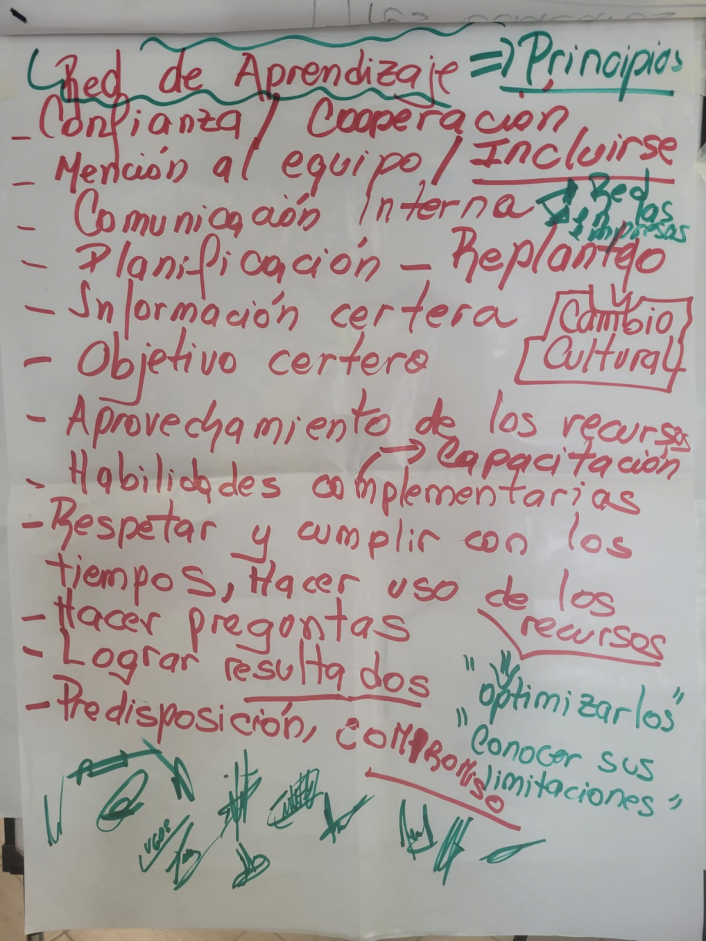 Red de Aprendizaje => Principios
- Confianza / Cooperación
- Mención al equipo / Incluirse
- Comunicación Interna Red
en las
empresas
- Planificación - Replanteo
- Información certera
Cambio
Cultural
- Objetivo certero
- Aprovechamiento de los recursos
→ Capacitación
- Habilidades complementarias
- Respetar y cumplir con los
tiempos, Hacer uso de los
recursos
- Hacer preguntas
- Lograr resultados
"optimizarlos"
- Predisposición, COMPROMISO
"Conocer sus
limitaciones"